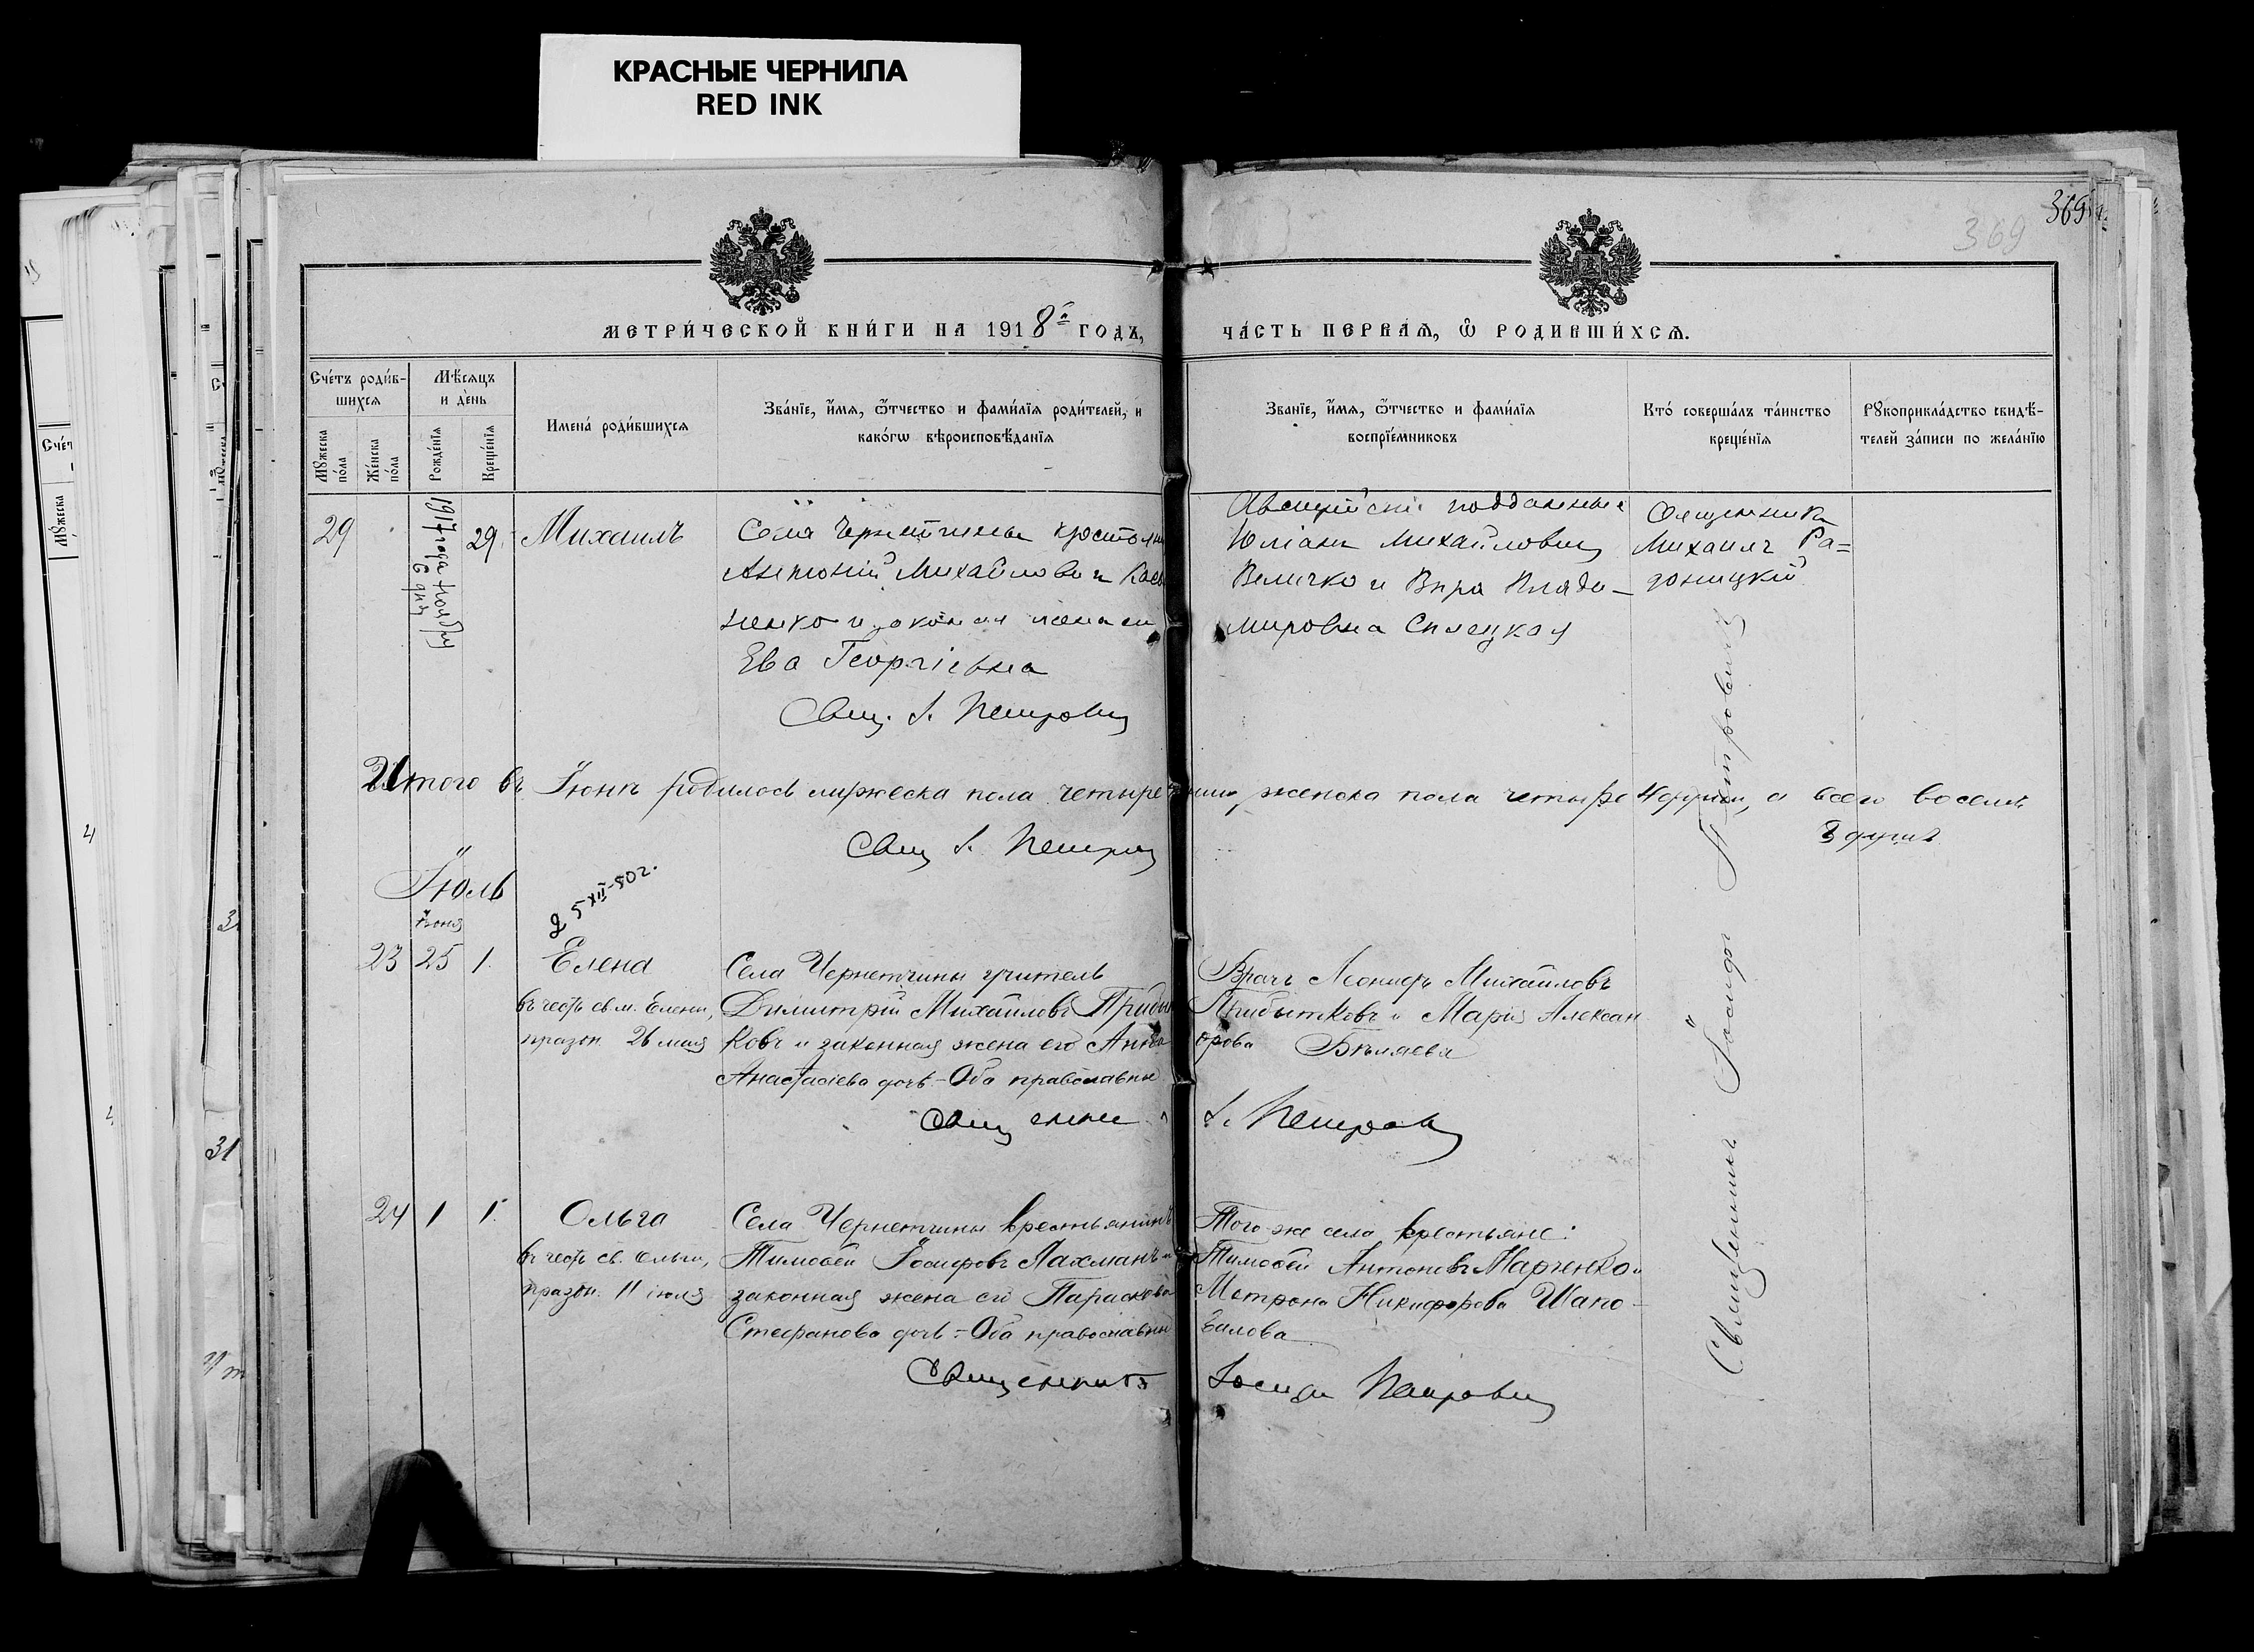 КРАСНЫЕ ЧЕРНИЛА
RED INK
369
369
МЕТРИ́ЧЕСКОЙ КНИ́ГИ НА 1918й ГОДЪ,
ЧА́СТЬ ПЕ́РВАЯ, Ѡ РОДИ́ВШИХСЯ.
Сче́тъ роди́в-
шихся
Мѣ́сяцъ
и де́нь
Мꙋ́жеска
по́ла
Же́нска
по́ла
Рожде́нїя
Креще́нїя
Имена́ роди́вшихся
Зва́нїе, и҆́мя, ѻ҆́тчество и фами́лїя роди́телей, и
како́гѡ вѣроисповѣ́данїя
Зва́нїе, и҆́мя, ѻ҆́тчество и фами́лїя
воспрїе́мниковъ
Кто́ соверша́лъ та́инство
креще́нїя
Рꙋкоприкла́дство свидѣ́-
телей за́писи по жела́нїю
29
1917 года Ноября
6 дня
29
Михаилъ
Села Чернетчины
Антоній Михайлович
ненко и законная жена его
Ева Георгіевна
Свящ. І. Петрович
подданные
Юліанъ Михайлович
Величко и Вѣра Влади-
мировна
Священникъ
Михаилъ Ра=
доницкій
Итого въ Іюнѣ родилось мужеска пола четыре женска пола четыре 4 души, а всего восемь
8 душъ
Свящ І. Петрович
Іюль
2 5 XII-50г.
Іюня
23 25 1.
Елена
въ честь св. м. Елены,
праздн. 26 мая
Села Чернетчины учитель
Димитрій Михайловъ Прибыт
ковъ и законная жена его Анна
Анастасіева дочь - Оба православны
Врачъ Леонидъ Михайловъ
Прибытковъ и Марія Алексан
дрова Бѣляева
Священник І. Петрович
24 1 1.
Ольга
въ честь св. Ольги,
празdн. 11 іюля
Села Чернетчины крестьянинъ
Тимоѳей Іосифовъ Лахманъ и
законная жена его Параскева
Стефанова дочь - Оба православны
Того же села крестьяне:
Тимоѳей Антоновъ Марченко и
Матрона Никифорова Шапо-
валова
Священникъ Іосифъ Петрович
Священникъ Іосифъ Петровичъ